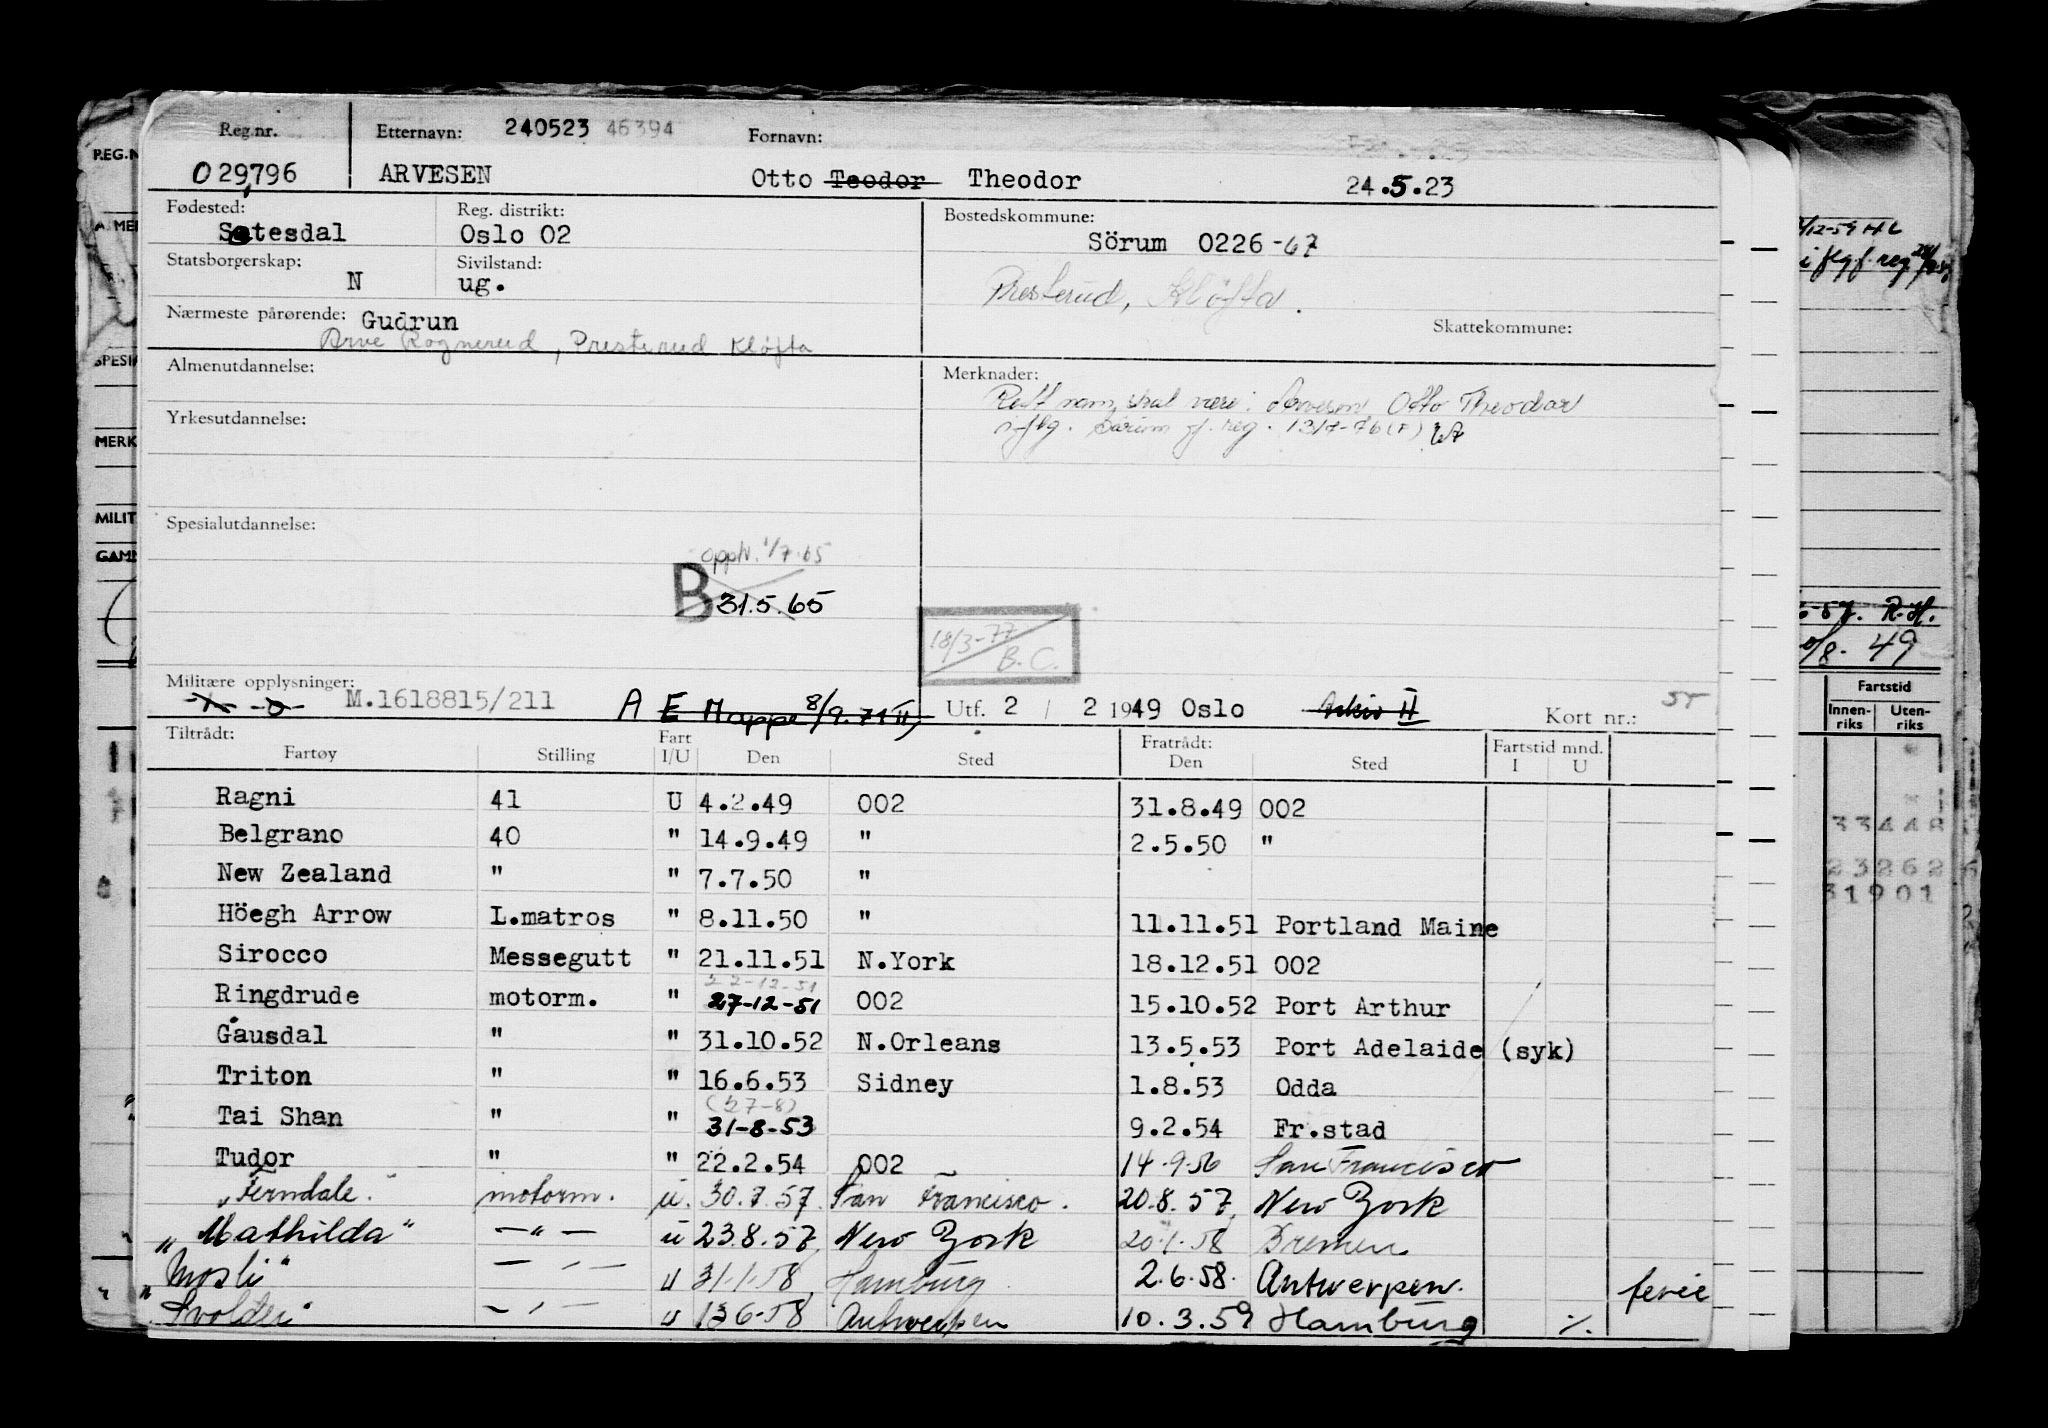 Reg.nr. Etternavn: 240523 46394 Fornavn:
029796 ARVESEN Otto Teodor Theodor 24.5.23
Fødested: Reg. distrikt: Bostedskommune:
Setesdal Oslo 02 Sörum 0226-67
Statsborgerskap: Sivilstand:
N ug. Presterud, Kløfta.
Nærmeste pårørende: Gudrun Skattekommune:
Arve Rognerud, Presterud Kløfta
Almenutdannelse: Merknader:
Rett navn skal være: Arvesen, Otto Theodor
Yrkesutdannelse: iflg. Sørum f. reg. 13/7-76 (F)
Spesialutdannelse:
Opph. 1/7.65
B 31.5.65
18/3-77
B.C.
Militære opplysninger: M.1618815/211 A E Mappe 8/9.71 II Utf. 2 / 2 1949 Oslo Arkiv II Kort nr.:
Tiltrådt: Fratrådt: Fartstid mnd.
Fartøy Stilling Fart I/U Den Sted Den Sted I U
Ragni 41 U 4.2.49 002 31.8.49 002
Belgrano 40 " 14.9.49 " 2.5.50 "
New Zealand " " 7.7.50 "
Höegh Arrow L.matros " 8.11.50 " 11.11.51 Portland Maine
Sirocco Messegutt " 21.11.51 N.York 18.12.51 002
22-12-51
Ringdrude motorm. " 27-12-51 002 15.10.52 Port Arthur
Gausdal " " 31.10.52 N.Orleans 13.5.53 Port Adelaide (syk)
Triton " " 16.6.53 Sidney 1.8.53 Odda
(27-8)
Tai Shan " " 31-8-53 9.2.54 Fr.stad
Tudor " " 22.2.54 002 14-9-56 San Francisco
"Ferndale." motorm. u. 30.7.57. San Francisco. 20.8.57, New York
"Mathilda" — " — u 23.8.57, New York 20.1.58 Bremen
"Mosli" — " — u 31.1.58, Hamburg 2.6.58. Antwerpen. ferie
"Svolder" — " — u 13.6-58 Antwerpen 10.3.59 Hamburg %.
REG.N
SPESI
MERK
MILIT
GAM
i flg. f. reg.
R.H.
/8. 49
Fartstid
Innen-riks Uten-riks
33448
23262
31901